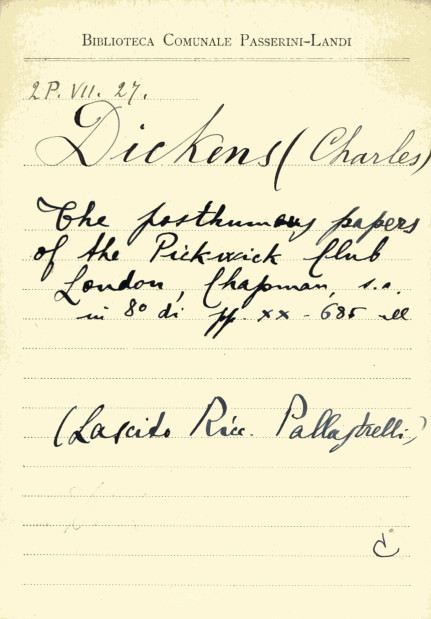 BIBLIOTECA COMUNALE PASSERINI-LANDI
2P. VII. 27.
Dickens (Charles)
The posthumous papers
of the Pickwick Club
London, Chapman, s.a.
in 8º di pp. XX - 685
(Lascito Ricc. Pallastrelli)